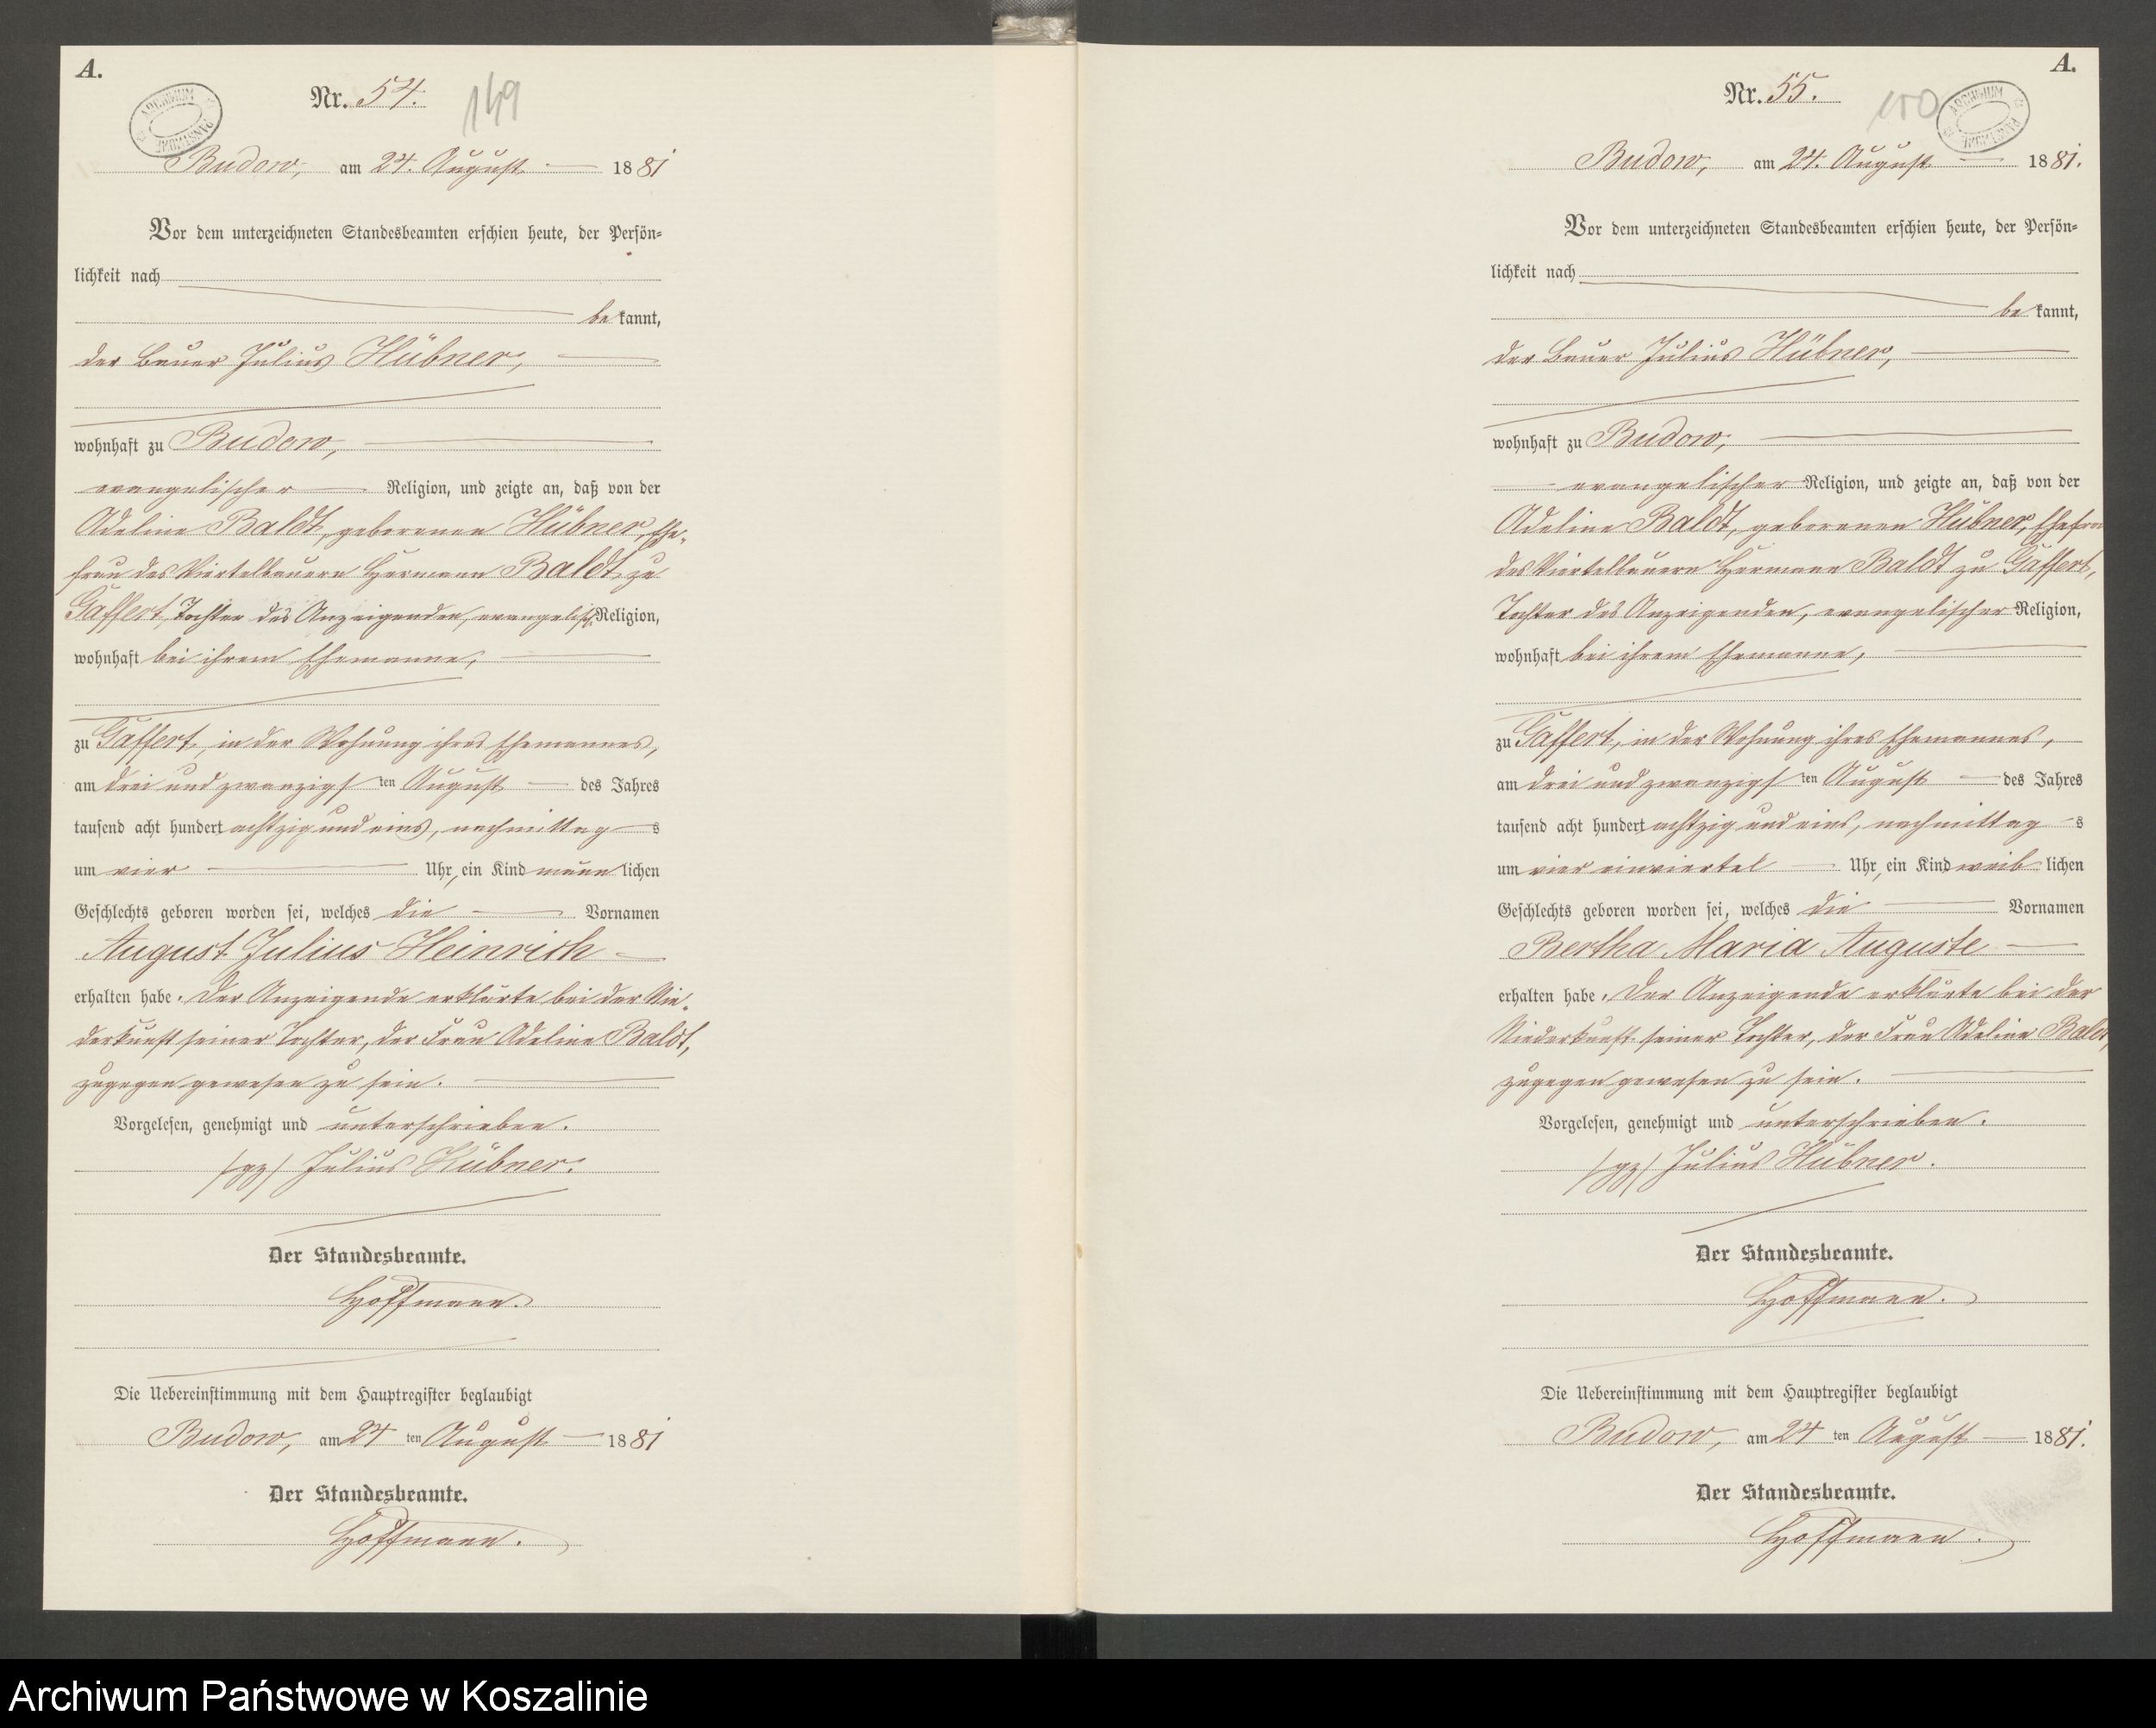 A.
ARCHIWUM PAŃSTWOWE
Nr. 54.
149
Budow, am 24. August 1881
Vor dem unterzeichneten Standesbeamten erschien heute, der Persön-
lichkeit nach
bekannt,
der Bauer Julius Hübner,
wohnhaft zu Budow,
evangelischer Religion, und zeigte an, daß von der
Adeline Baldt, geborenen Hübner, Ehe-
frau des Viertelbauern Hermann Baldt zu
Gaffert, Tochter des Anzeigenden, evangelisch Religion,
wohnhaft bei ihrem Ehemanne,
zu Gaffert, in der Wohnung ihres Ehemannes,
am drei und zwanzigsten August des Jahres
tausend acht hundert achtzig und eins, nachmittags
um vier Uhr, ein Kind männlichen
Geschlechts geboren worden sei, welches die Vornamen
August Julius Heinrich
erhalten habe. Der Anzeigende erklärte bei der Nie-
derkunft seiner Tochter, der Frau Adeline Baldt,
zugegen gewesen zu sein.
Vorgelesen, genehmigt und unterschrieben.
/gz/ Julius Hübner.
Der Standesbeamte.
Hoffmann.
Die Uebereinstimmung mit dem Hauptregister beglaubigt
Budow, am 24 ten August 1881
Der Standesbeamte.
Hoffmann.
A.
ARCHIWUM PAŃSTWOWE
Nr. 55.
150
Budow, am 24. August 1881.
Vor dem unterzeichneten Standesbeamten erschien heute, der Persön-
lichkeit nach
bekannt,
der Bauer Julius Hübner,
wohnhaft zu Budow,
evangelischer Religion, und zeigte an, daß von der
Adeline Baldt, geborenen Hübner, Ehefrau
des Viertelbauern Hermann Baldt zu Gaffert,
Tochter des Anzeigenden, evangelischer Religion,
wohnhaft bei ihrem Ehemanne,
zu Gaffert, in der Wohnung ihres Ehemannes,
am drei und zwanzigsten August des Jahres
tausend acht hundert achtzig und eins, nachmittags
um vier einviertel Uhr, ein Kind weiblichen
Geschlechts geboren worden sei, welches die Vornamen
Bertha Maria Auguste
erhalten habe. Der Anzeigende erklärte bei der
Niederkunft seiner Tochter, der Frau Adeline Baldt,
zugegen gewesen zu sein.
Vorgelesen, genehmigt und unterschrieben.
/gz/ Julius Hübner.
Der Standesbeamte.
Hoffmann.
Die Uebereinstimmung mit dem Hauptregister beglaubigt
Budow, am 24 ten August 1881.
Der Standesbeamte.
Hoffmann.
Archiwum Państwowe w Koszalinie